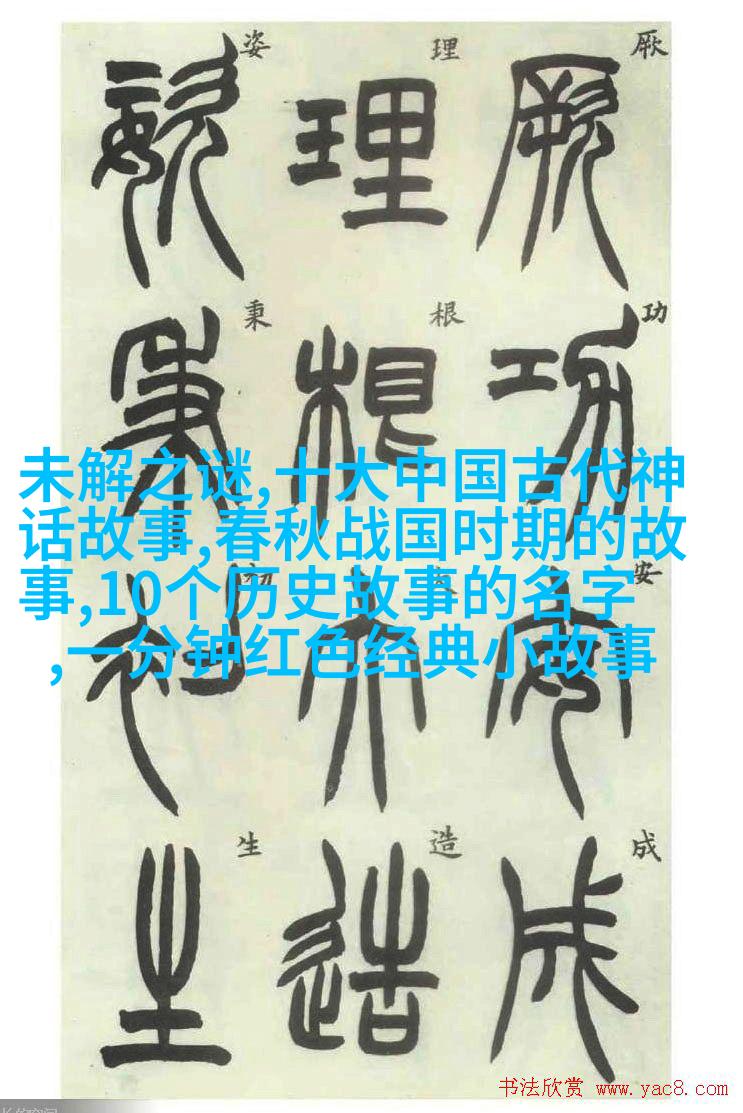 厥功安成
厥功安成
理根造
理根造
姿秉初生
姿秉初生
未解之谜,十大中国古代神
话故事,春秋战国时期的故
事,10个历史故事的名字
,一分钟红色经典小故事
书法欣赏 www.yac8.com